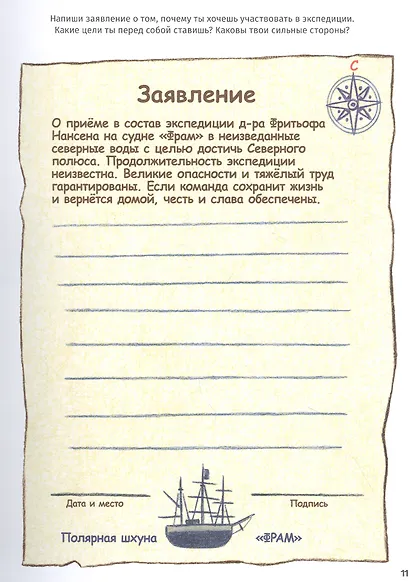 Напиши заявление о том, почему ты хочешь участвовать в экспедиции.
Какие цели ты перед собой ставишь? Каковы твои сильные стороны?
С
Заявление
О приёме в состав экспедиции д-ра Фритьофа
Нансена на судне «Фрам» в неизведанные
северные воды с целью достичь Северного
полюса. Продолжительность экспедиции
неизвестна. Великие опасности и тяжёлый труд
гарантированы. Если команда сохранит жизнь
и вернётся домой, честь и слава обеспечены.
Дата и место
Подпись
Полярная шхуна «ФРАМ»
11